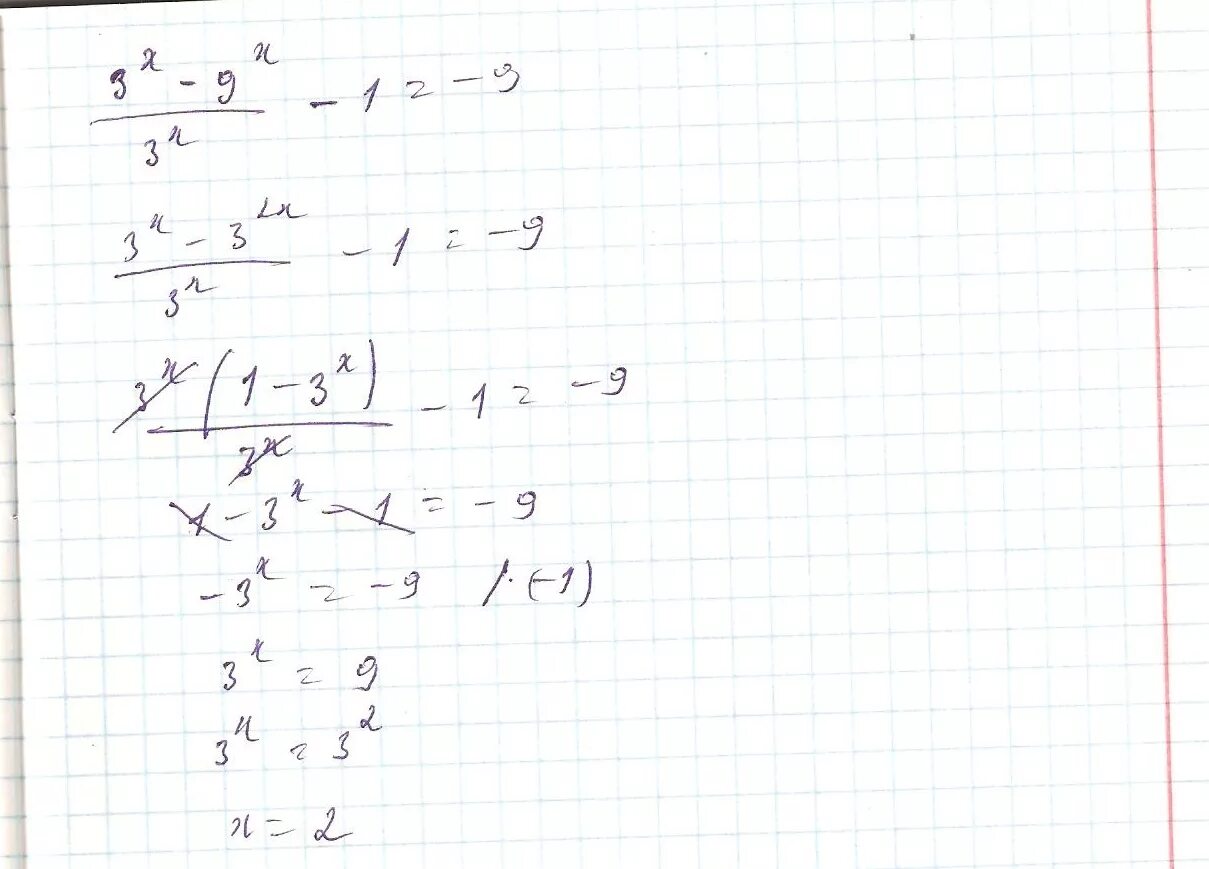 (3^x - 9^x)/3^x - 1 = -9
(3^x - 3^{2x})/3^x - 1 = -9
3^x(1 - 3^x)/3^x - 1 = -9
1 - 3^x - 1 = -9
-3^x = -9 /·(-1)
3^x = 9
3^x = 3^2
x = 2